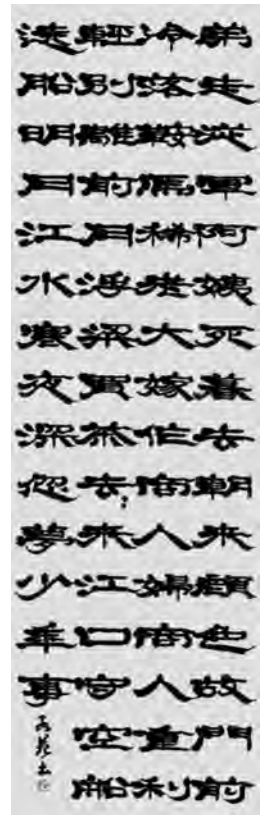 弟走從軍阿姨死暮去朝來顏色故門前
冷落鞍馬稀老大嫁作商人婦商人重利
輕別離前月浮梁買茶去〻來江口守空船
遶船明月江水寒夜深忽夢少年事